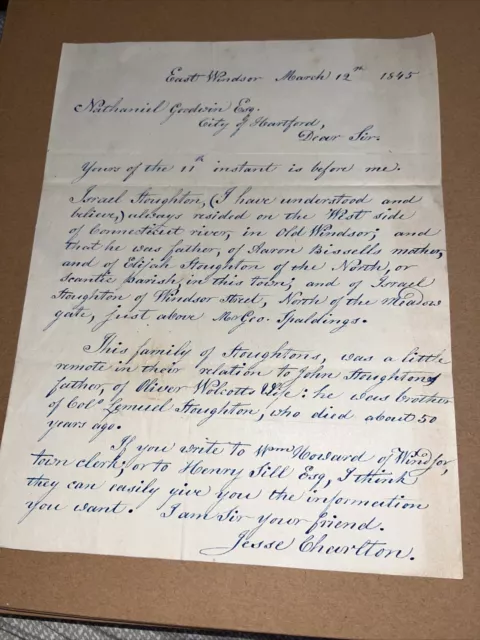 East Windsor March 12th 1845
Nathaniel Goodwin Esq.
City of Hartford,
Dear Sir.
Yours of the 11th instant is before me.
Israel Stoughton, (I have understood and
believe,) always resided on the West side
of Connecticut river, in Old Windsor; and
that he was father, of Aaron Bissells mother,
and of Elijah Stoughton of the North, or
Scantic Parish, in this town; and of Israel
Stoughton of Windsor Street, North of the Meadow
gate, just above Mr Geo. Spaldings.
This family of Stoughtons, was a little
remote in their relation to John Stoughtons
father, of Oliver Wolcotts Wife: he was brother
of Colo. Lemuel Stoughton, who died about 50
years ago.
If you write to Wm Howard of Windsor,
town clerk, or to Henry Sill Esq, I think
they can easily give you the information
you want. I am Sir your friend.
Jesse Charlton.